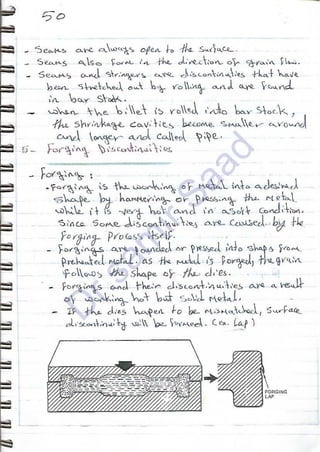 50
- Seams are always open to the surface.
- Seams also form in the direction of grain flow.
- Seams and stringers are discontinuities that have
been stretched out by rolling and are found
in bar stock.
- when the billet is rolled into bar stock,
the shrinkage cavities become smaller around
and longer and called pipe.
5- Forging Discontinuities
- Forging:
- Forging is the working of metal into a desired
shape by hammering or pressing the metal
while it is very hot and in a soft condition.
Since some discontinuities are caused by the
forging process itself.
- Forgings are pounded or pressed into shaps from
preheated metal. as the metal is forged, the grain
follows the shape of the dies.
- Forgings and their discontinuities are a result
of working hot but solid metal.
- If the dies happen to be mismatched, surface
discontinuity will be formed. (ex. Lap)
FORGING
LAP